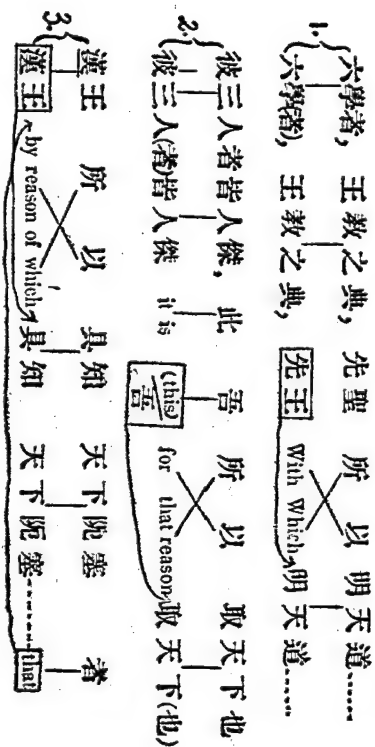 1. 六學者, 王教之典, 先聖 所以 明天道……
六學者), 王教之典, 先王 With Which 明天道……
2. 彼三人者皆人傑, 此 吾 所以 取天下也
彼三人(者)皆人傑 it is (this) 吾 for that reason 取天下(也)
3. 漢王 所以 具知 天下阨塞 者
漢王 by reason of which 具知 天下阨塞…… that